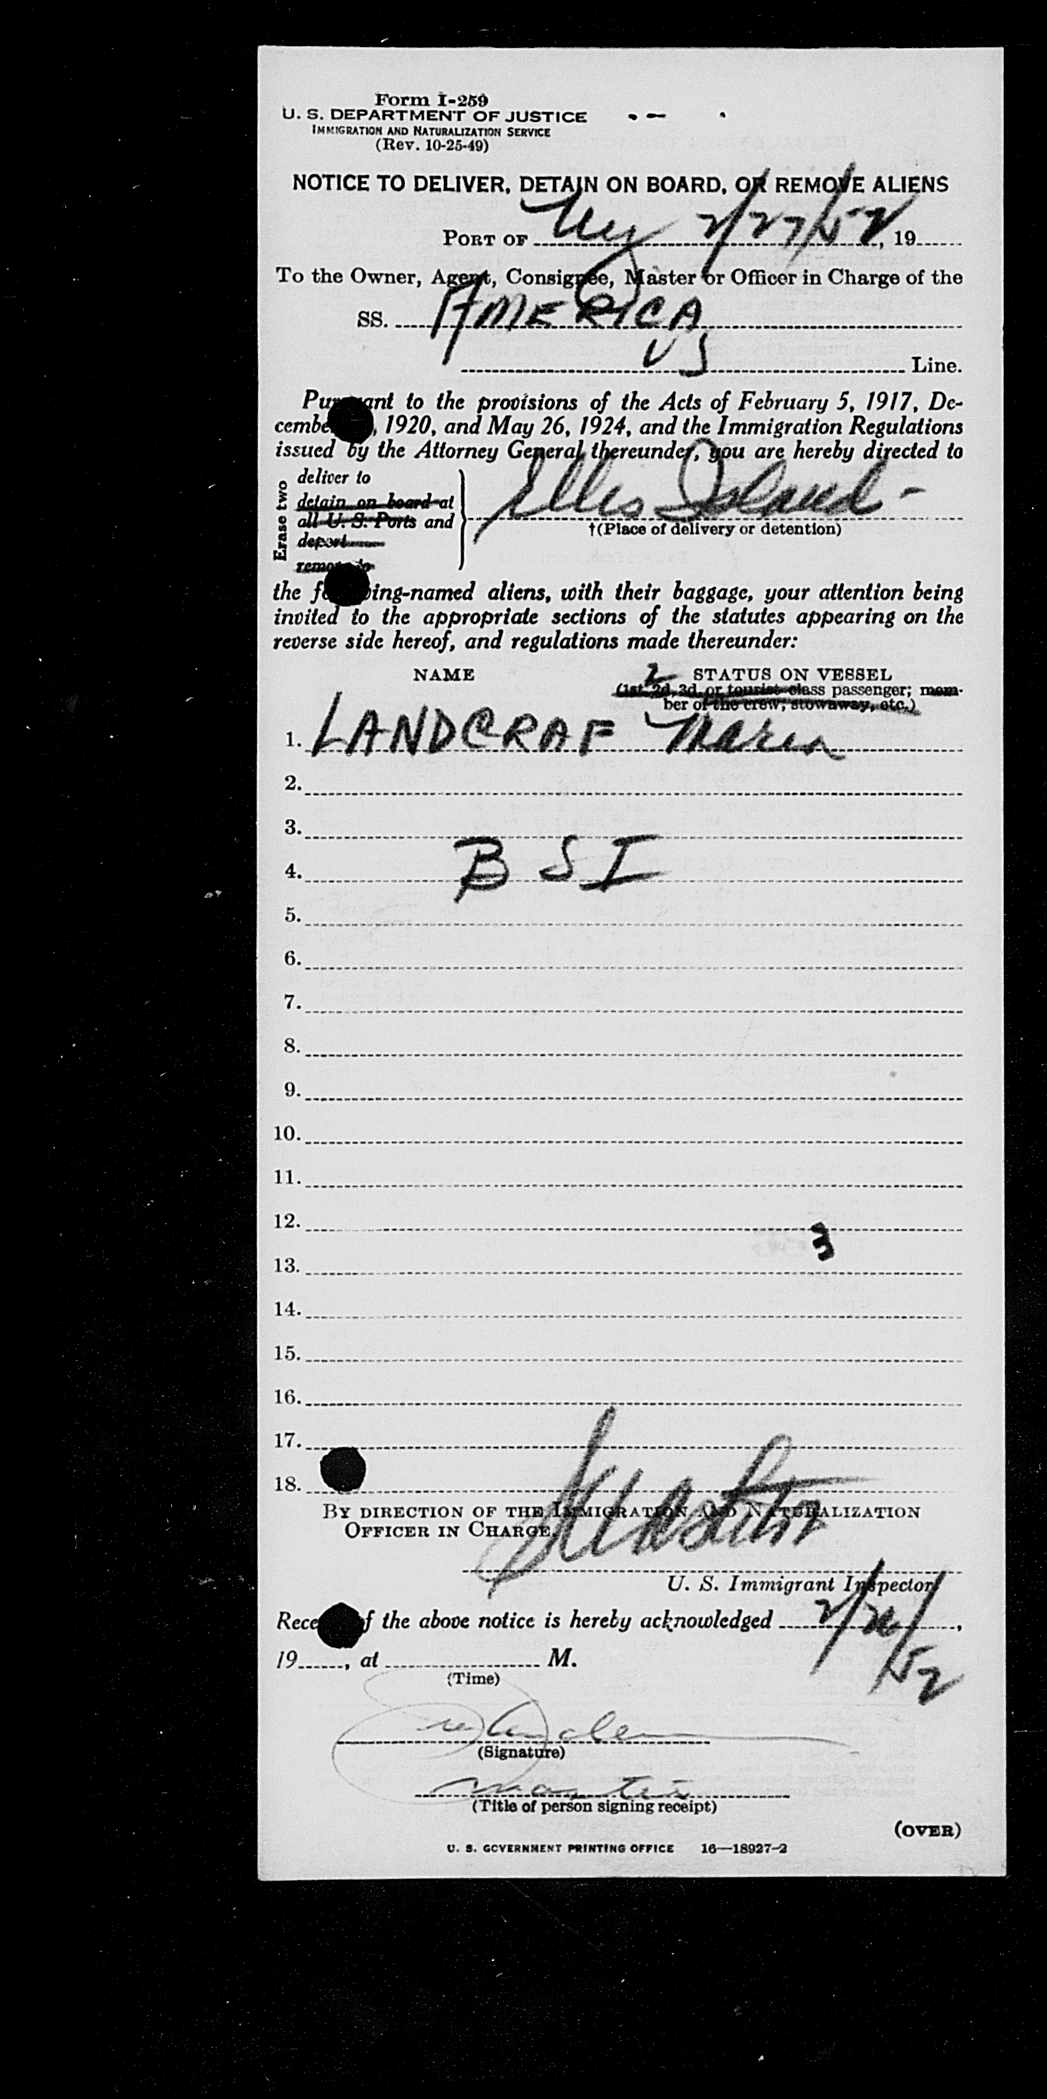 Form I-259
U. S. DEPARTMENT OF JUSTICE
IMMIGRATION AND NATURALIZATION SERVICE
(Rev. 10-25-49)
NOTICE TO DELIVER, DETAIN ON BOARD, OR REMOVE ALIENS
PORT OF Ny 2/27/52, 19
To the Owner, Agent, Consignee, Master or Officer in Charge of the
SS. AMERICA
US Line.
Pursuant to the provisions of the Acts of February 5, 1917, De-
cember , 1920, and May 26, 1924, and the Immigration Regulations
issued by the Attorney General thereunder, you are hereby directed to
Erase two
deliver to
detain on board at
all U. S. Ports and
deport
remove to
Ellis Island -
†(Place of delivery or detention)
the following-named aliens, with their baggage, your attention being
invited to the appropriate sections of the statutes appearing on the
reverse side hereof, and regulations made thereunder:
NAME 2 STATUS ON VESSEL
(1st, 2d, 3d, or tourist class passenger; mem-
ber of the crew; stowaway, etc.)
1. LANDGRAF Maria
2.
3.
4. B S I
5.
6.
7.
8.
9.
10.
11.
12.
3
13.
14.
15.
16.
17.
18.
BY DIRECTION OF THE IMMIGRATION AND NATURALIZATION
OFFICER IN CHARGE,
U. S. Immigrant Inspector
Receipt of the above notice is hereby acknowledged 2/ /52,
19, at M.
(Time)
(Signature)
master
(Title of person signing receipt)
(OVER)
U. S. GOVERNMENT PRINTING OFFICE 16—18927-2